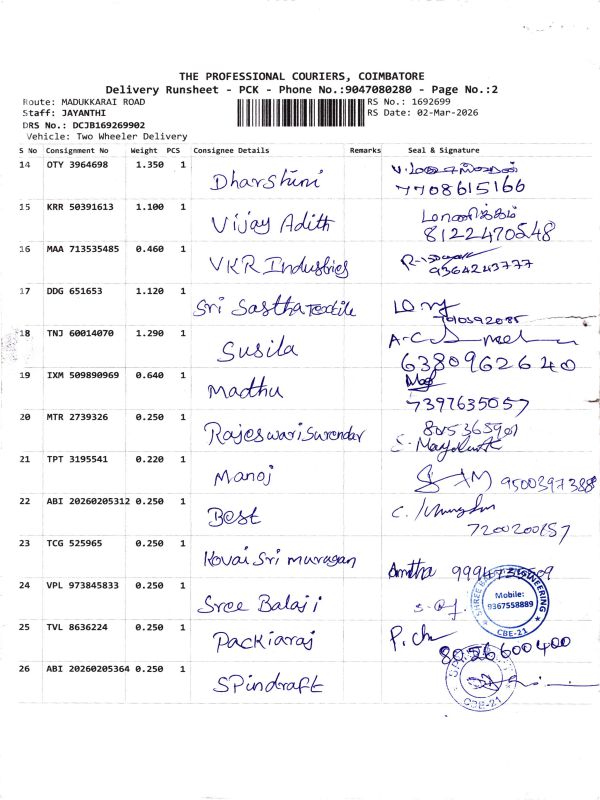 THE PROFESSIONAL COURIERS, COIMBATORE
Delivery Runsheet - PCK - Phone No.:9047080280 - Page No.:2
Route: MADUKKARAI ROAD
RS No.: 1692699
Staff: JAYANTHI
RS Date: 02-Mar-2026
DRS No.: DCJB169269902
Vehicle: Two Wheeler Delivery
S No Consignment No Weight PCS Consignee Details Remarks Seal & Signature
14 OTY 3964698 1.350 1 Dharshini
7708615166
15 KRR 50391613 1.100 1 Vijay Adith மாணிக்கம்
8122470548
16 MAA 713535485 0.460 1 VKR Industries
9364243777
17 DDG 651653 1.120 1 Sri Sastha Textile
18 TNJ 60014070 1.290 1 Susila
6380962640
19 IXM 509890969 0.640 1 Madhu
7397635057
20 MTR 2739326 0.250 1 Rajeswari Surendar
21 TPT 3195541 0.220 1 Manoj 9500397388
22 ABI 20260205312 0.250 1 Best
7200200157
23 TCG 525965 0.250 1 Kovai Sri murugan Amitha
24 VPL 973845833 0.250 1 Sree Balaji
Mobile:
9367558889
CBE-21
25 TVL 8636224 0.250 1 Packiaraj
8056600400
26 ABI 20260205364 0.250 1 Spindraft
CBE-21